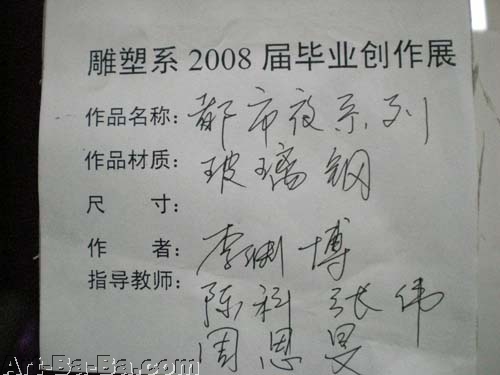 雕塑系 2008 届毕业创作展
作品名称: 都市夜系列
作品材质: 玻璃钢
尺 寸:
作 者: 李渊博
指导教师: 陈科 张伟
周恩旻
Art-Ba-Ba.com